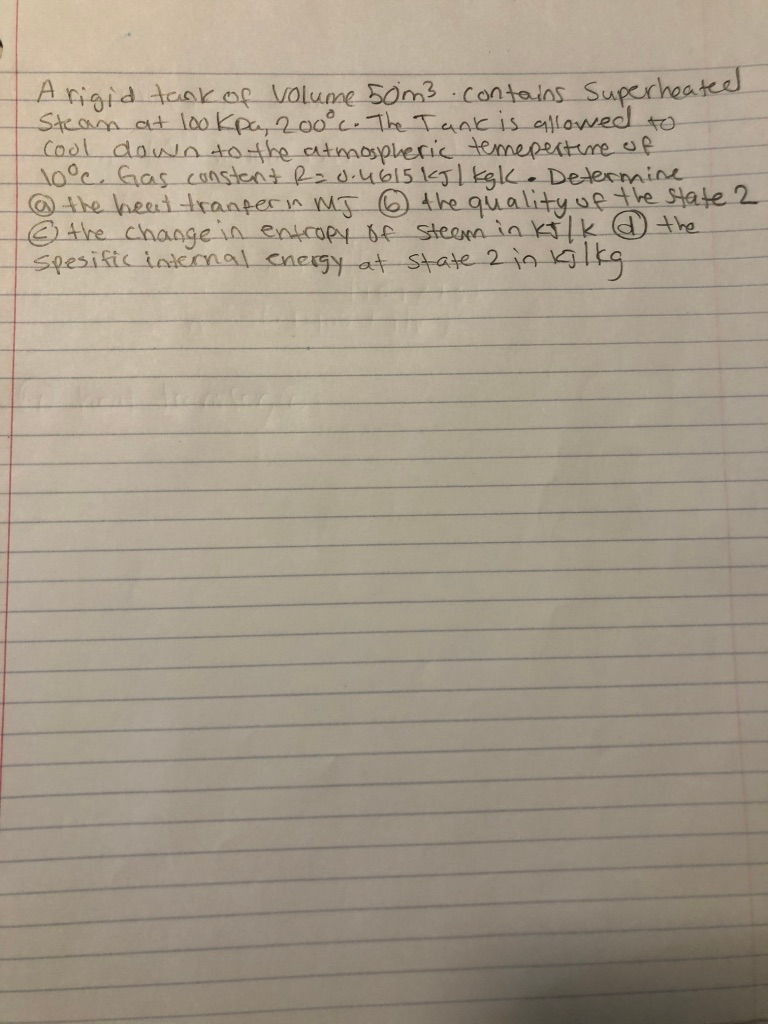 A rigid tank of Volume 50m3 . contains Superheated
Steam at 100 Kpa, 200°c. The Tank is allowed to
Cool down to the atmospheric temeperture of
10°c. Gas constant R= 0.4615 KJ/kgk. Determine
ⓐ the heat tranfer in MJ ⓑ the quality of the state 2
ⓒ the change in entropy of steem in KJ/k ⓓ the
Spesific internal energy at state 2 in KJ/kg